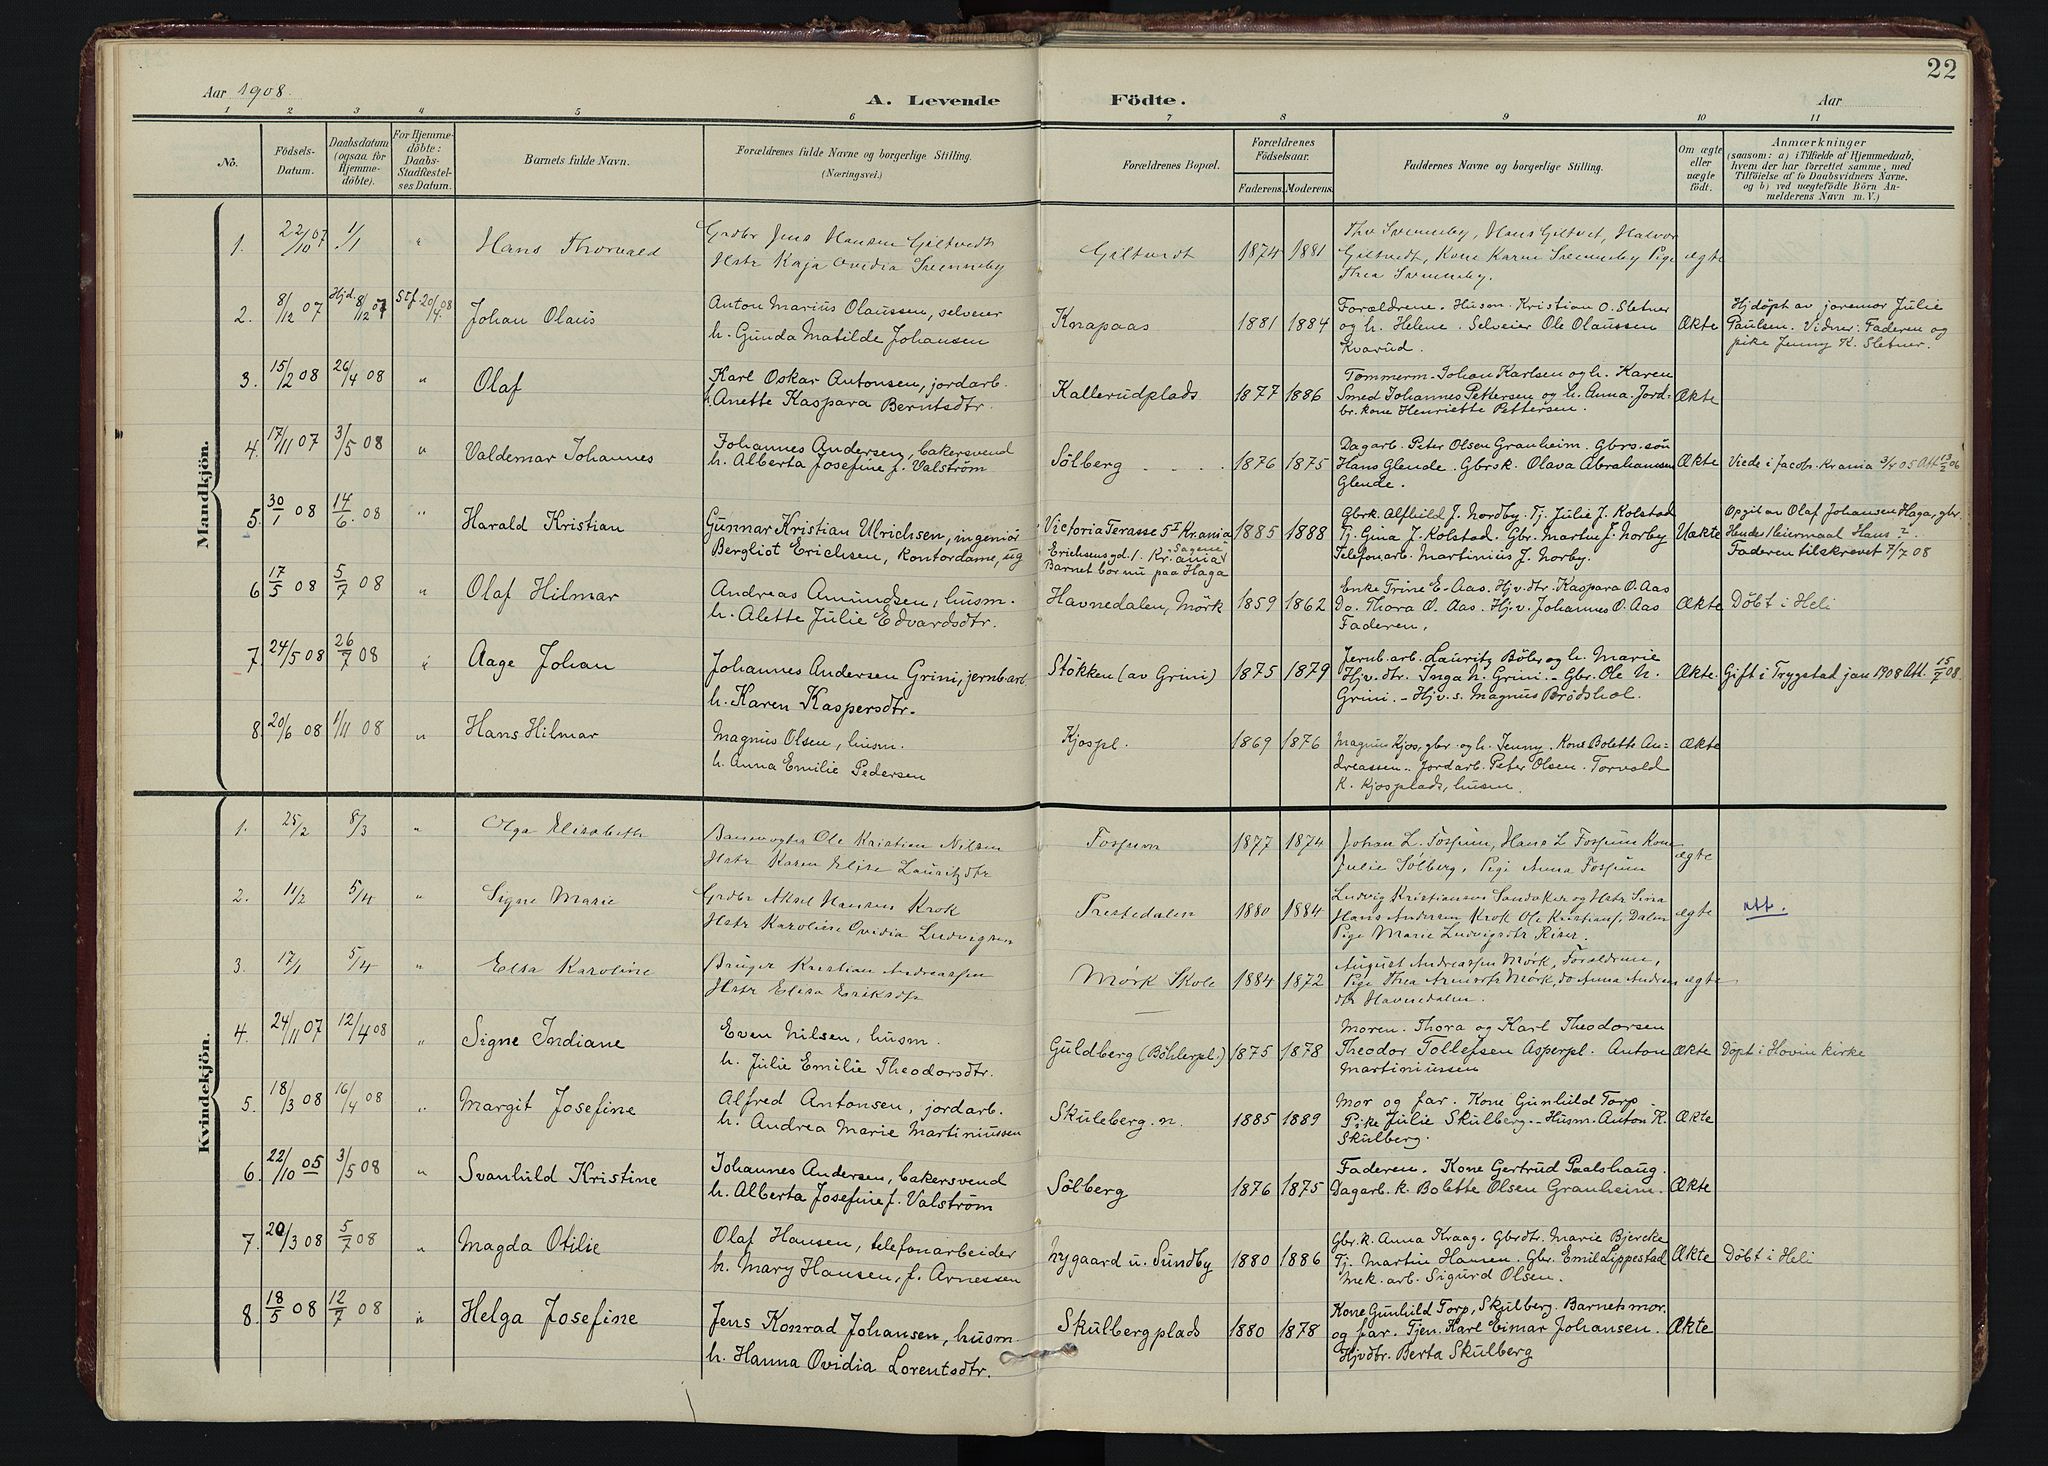 22
Aar 1908.
A. Levende Födte.
Aar
1 2 3 4 5 6 7 8 9 10 11
No.
Födsels-Datum.
Daabsdatum (ogsaa for Hjemmedöbte).
For Hjemmedöbte: Daabs-Stadfæstelses Datum.
Barnets fulde Navn.
Forældrenes fulde Navne og borgerlige Stilling.
(Næringsvei.)
Forældrenes Bopæl.
Forældrenes Födselsaar.
Faderens. Moderens.
Faddernes Navne og borgerlige Stilling.
Om ægte eller uægte födt.
Anmærkninger
(saasom: a) i Tilfælde af Hjemmedaab, hvem der har forrettet samme, med Tilföielse af to Daabsvidners Navne, og b) ved uægtefödte Börn Anmelderens Navn m. V.)
Mandkjön.
1. 22/10 07 1/1 " Hans Thorvald
Grdbr Jens Hansen Giltvedt
Hstr Kaja Ovidia Svenneby
Giltvedt 1874 1881
Thv Svenneby, Hans Giltvet, Halvor
Giltvedt, Kone Karne Svenneby Pige
Thea Svenneby.
ægte
2. 8/12 07 Hjd. 8/12 07 Stf. 20/4 08 Johan Olaus
Anton Marius Olaussen, selveier
h. Gunda Matilde Johansen
Knapaas 1881 1884
Forældrene. Husm. Kristian O. Sletner
og h. Helene. Selveier Ole Olaussen
Kvarud.
Ækte
Hjdöpt av joremor Julie
Paulsen. Vidner: Faderen og
pike Jenny K. Sletner.
3. 15/2 08 26/4 08 " Olaf
Karl Oskar Antonsen, jordarb.
h. Anette Kaspara Berntsdtr.
Kallerudplads 1877 1886
Tömmerm. Johan Karlsen og h. Karen
Smed Johannes Pettersen og h. Anna. Jord-
br. kone Henriette Pettersen.
Ækte
4. 17/11 07 3/5 08 " Valdemar Johannes
Johannes Andersen, bakersvend
h. Alberta Josefine f. Valström
Sölberg 1876 1875
Dagarb. Peter Olsen Granheim. Gbrs. sön
Hans Glende. Gbrsk. Olava Abrahamsen
Glende.
Ækte
Viede i Jacob. Krania 3/4 05 Att 13/2 06
5. 30/1 08 14/6 08 " Harald Kristian
Gunnar Kristian Ulrichsen, ingeniör
Bergliot Erichsen, kontordame, ug
Victoria Terasse 5 I Krania
Erichsens gd. 1. Sagene Kr.ania
Barnet bor nu paa Haga
1885 1888
Gbrk. Alfhild J. Nordby. Tj. Julie J. Kolstad
Tj. Gina J. Kolstad. Gbr. Martin J. Norby
Telefonarb. Martinius J. Norby.
Uækte
Opgit av Olaf Johansen Haga, gbr.
Hendes Heirmaal Hans ?
Faderen tilskrevet 7/7 08
6. 17/5 08 5/7 08 " Olaf Hilmar
Andreas Amundsen, husm.
h. Alette Julie Edvardsdtr.
Havnedalen, Mörk 1859 1862
Enke Trine E. Aas. Hjv. dtr. Kaspara O. Aas
Do. Thora O. Aas. Hjv. Johannes O. Aas
Faderen.
Ækte
Döbt i Heli
7. 24/5 08 26/7 08 " Aage Johan
Johannes Andersen Grini, jernb.arb.
h. Karen Kaspersdtr.
Stökken (av Grini) 1875 1879
Jernb. arb. Lauritz Böler og h. Marie
Hjv. dtr. Inga N. Grini. - Gbr. Ole N.
Grini. - Hjv. s. Magnus Brödshol.
Ækte.
Gift i Trygstad jan 1908 Att. 15/7 08.
8. 20/6 08 1/11 08 " Hans Hilmar
Magnus Olsen, husm.
h. Anna Emilie Pedersen
Kjospl. 1869 1876
Magnus Kjos, gbr. og h. Jenny. Kone Bolette An-
dreassen. Jordarb. Peter Olsen. Torvald
K. Kjosplads, husm.
Ækte
Kvindekjön.
1. 25/2 8/3 " Olga Elisabeth
Banevogter Ole Kristian Nilsen
Hstr Karen Elise Lauritzdtr
Fossum 1877 1874
Johan L. Fossum, Hans L Fossum Kone
Julie Sölberg, Pige Anna Fossum
ægte
2. 11/2 5/4 " Signe Marie
Grdbr Aksel Hansen Krok
Hstr Karoline Ovidia Ludvigsen
Prestedalen 1880 1884
Ludvig Kristiansen Sandaker og Hstr Sina
Hans Andersen Krok Ole Kristians. Dalen
Pige Marie Ludvigsdtr Riser.
ægte
Att.
3. 17/1 5/4 " Elsa Karoline
Bruger Kristian Andreassen
Hstr Elisa Eriksdtr
Mörk Skole 1884 1872
August Andreassen Mörk, Forældrene,
Pige Thea Arnesdtr Mörk, do Anna Andreas
dtr Havnedalen.
ægte
4. 24/11 07 12/4 08 " Signe Indiane
Even Nilsen, husm.
h. Julie Emilie Theodorsdtr.
Guldberg (Böhlerpl.) 1875 1878
Moren. Thora og Karl Theodorsen
Theodor Tollefsen Asperpl. Anton
Martiniussen
Ækte
Döpt i Hovin kirke
5. 18/3 08 16/4 08 " Margit Josefine
Alfred Antonsen, jordarb.
h. Andrea Marie Martiniussen
Skuleberg. n. 1885 1889
Mor og far. Kone Gunhild Torp
Pike Julie Skulberg. - Husm. Anton K.
Skulberg.
Ækte
6. 22/10 05 3/5 08 " Svanhild Kristine
Johannes Andersen, bakersvend
h. Alberta Josefine f. Valström
Sölberg 1876 1875
Faderen. Kone Gertrud Paalshaug.
Dagarb. k. Bolette Olsen Granheim.
Ækte
7. 20/3 08 5/7 08 " Magda Otilie
Olaf Hansen, telefonarbeider
h. Mary Hansen, f. Arnessen
Nygaard u. Sundby 1880 1886
Gbr. k. Anna Kraag. Gbrdtr. Marie Bjercke
Tj. Martin Hansen. Gbr. Emil Lippestad
Mek. arb. Sigurd Olsen.
Ækte
Döbt i Heli
8. 18/5 08 12/7 08 " Helga Josefine
Jens Konrad Johansen, husm.
h. Hanna Ovidia Lorentsdtr.
Skulbergplads 1880 1878
Kone Gunhild Torp, Skulberg. Barnets mor.
og far. Tjen. Karl Eimar Johansen.
Hjvdtr. Berta Skulberg
Ækte